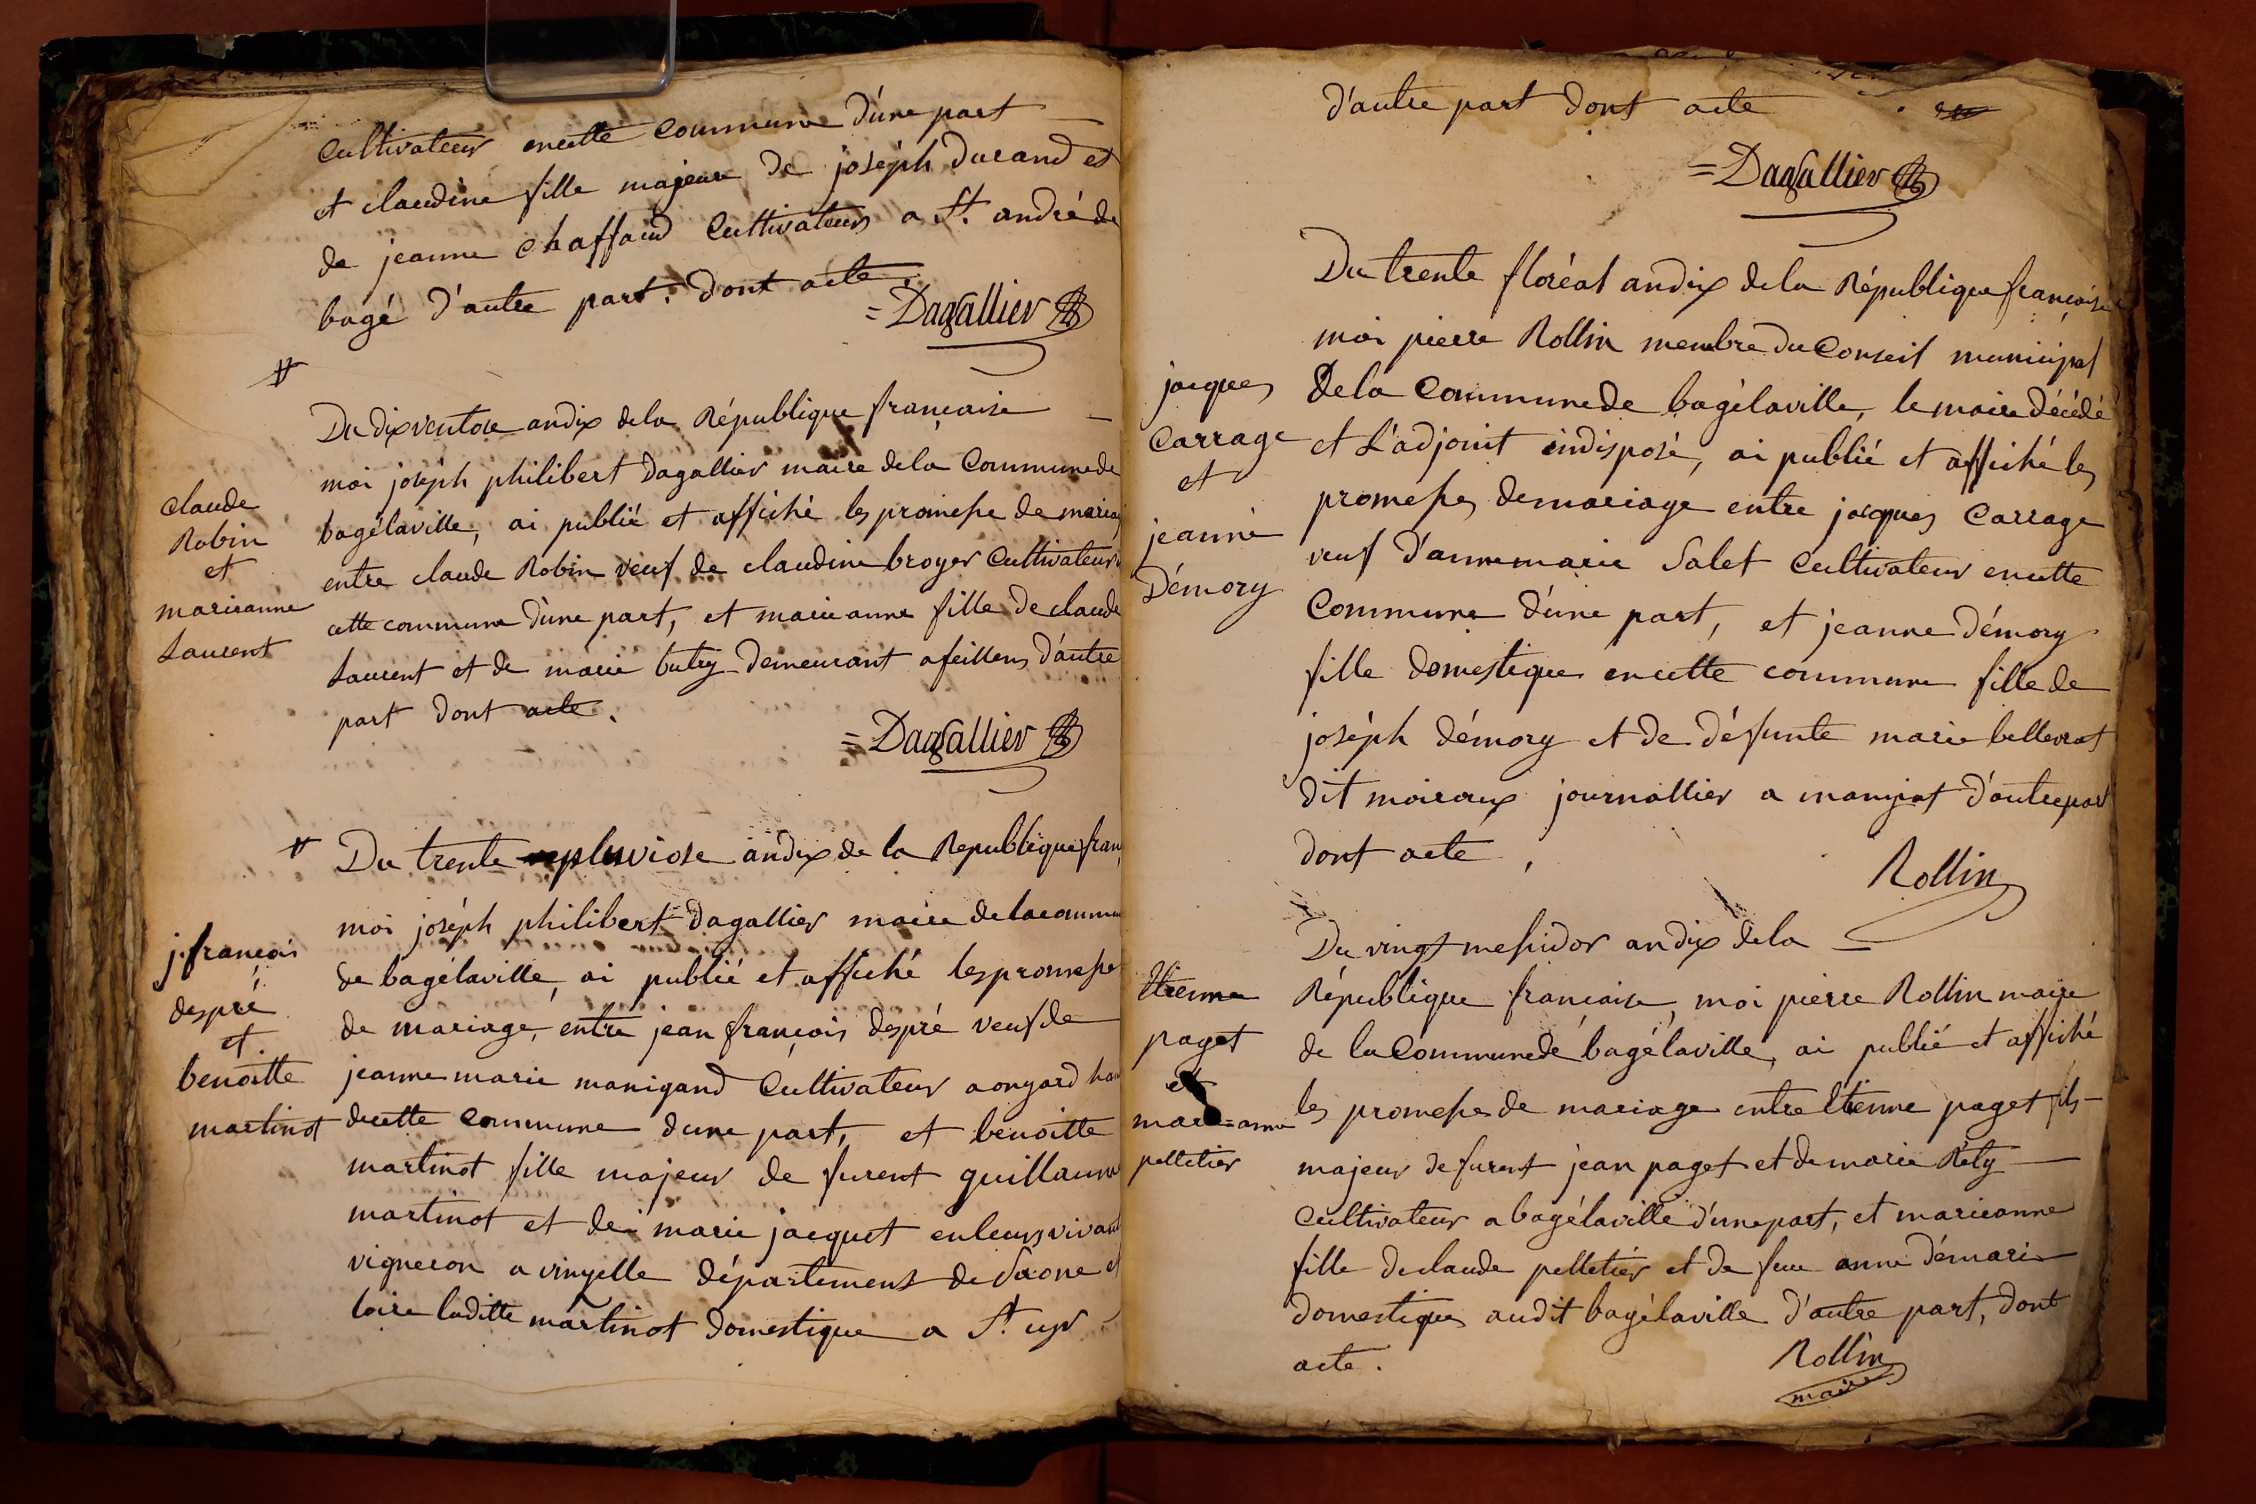 Cultivateur encette Commune d'une part
et claudine fille majeure de joséph durand et
de jeanne chaffaud Cultivateurs a St. andré de
bagé d'autre part. dont acte.
= Dagallier
Du dix ventose an dix de la République française
moi joséph philibert Dagallier maire de la Commune de
claude
Robin
et
marieanne
Laurent
bagélaville, ai publié et affiché les promesse de mariag
entre claude Robin veuf de claudine broyer Cultivateur
cette commune d'une part, et marie anne fille de claude
Laurent et de marie butry demeurant a feillens d'autre
part dont acte.
= Dagallier
Du trente pluviose an dix de la Republique fran
moi joséph philibert Dagallier maire de la commu
j. francois
despré
et
benoitte
martinot
de bagélaville, ai publié et affiché les promesse
de mariage, entre jean françois despré veuf de
jeanne marie manigand Cultivateur a ongard ha
decette commune d'une part, et benoitte
martinot fille majeur de furent guillaume
martinot et de marie jacquet en leurs vivant
vigneron a vinzelle département de Saone et
loire laditte martinot domestique a St. cyr
d'autre part dont acte
= Dagallier
Du trente floréal an dix de la République française
moi pierre Rollin membre du Conseil municipal
jacques
Carrage
et
jeanne
Démory
de la Commune de bagélaville, le maire décédé
et L'adjoint indisposé, ai publié et affiché les
promesses de mariage entre jacques Carrage
veuf d'anne marie Salet Cultivateur encette
Commune d'une part, et jeanne démory
fille domestique encette commune fille de
joséph démory et de défunte marie bellevrat
dit moiroux journallier a manziat d'autre part
dont acte,
Rollin
Du vingt messidor an dix de la
Etienne
paget
et
marie=anne
pelletier
République francaise, moi pierre Rollin maire
de la Commune de bagélaville, ai publié et affiché
les promesse de mariage entre Etienne paget fils
majeur de furent jean paget et de marie Réty
Cultivateur a bagélaville d'une part, et marieanne
fille de claude pelletier et de feue anne démarie
domestiques audit bagélaville d'autre part, dont
acte.
Rollin
maire